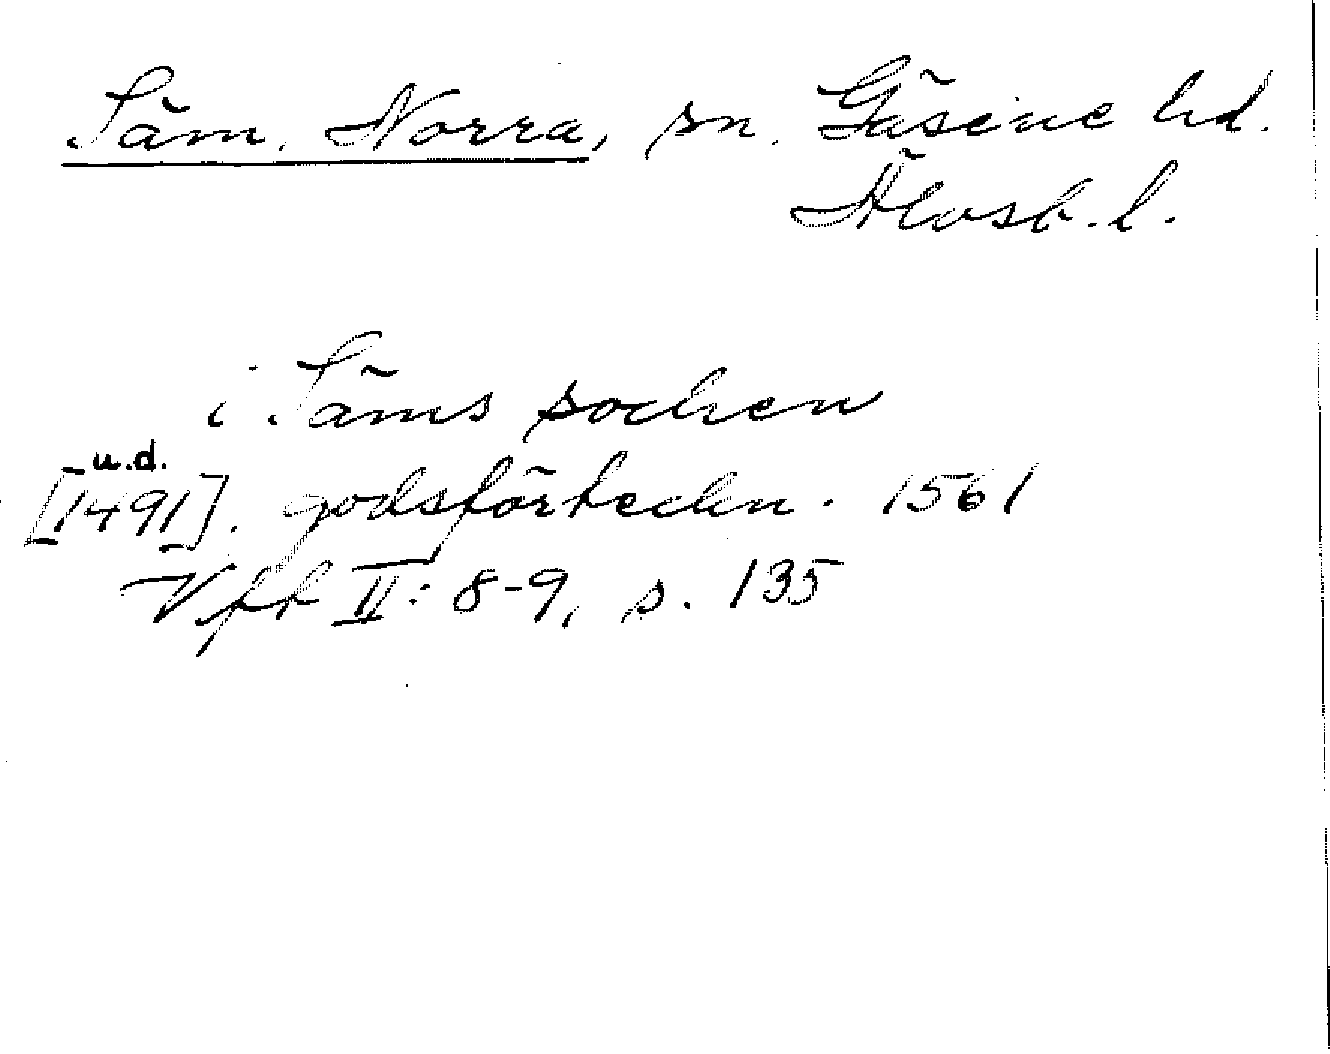 Säm, Norra, sn. Gäsene hd.
Älvsb. l.
i Säms sochen
u.d.
[1491]. godsförteckn. 1561
Vfft II: 8-9, s. 135